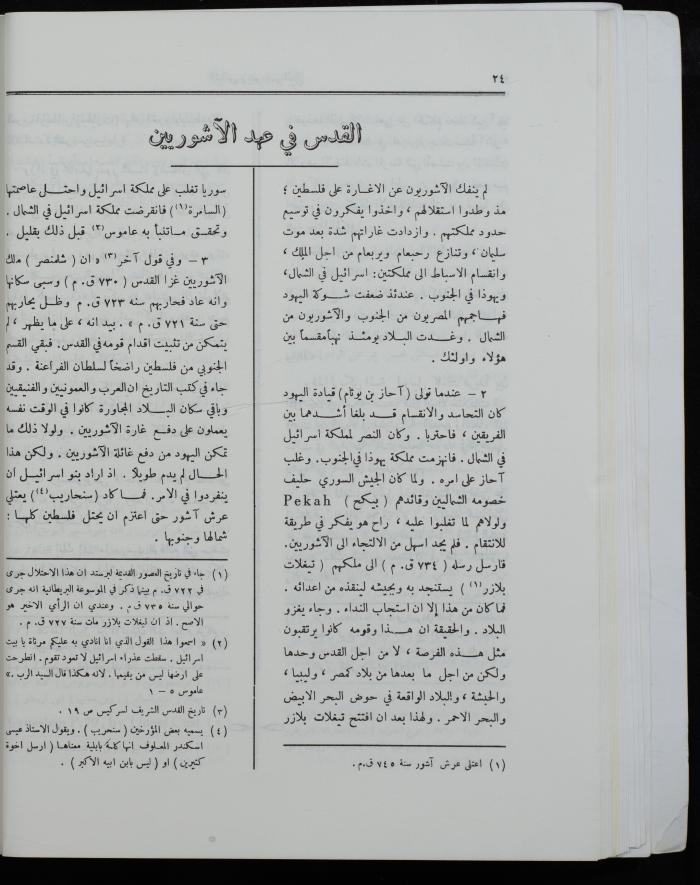 ٢٤
القدس في عهد الآشوريين
لم ينفك الآشوريون عن الاغارة على فلسطين ؛
مذ وطدوا استقلالهم ، واخذوا يفكرون في توسيع
حدود مملكتهم . وازدادت غاراتهم شدة بعد موت
سليمان ، وتنازع رحبعام ويربعام من اجل الملك ،
وانقسام الاسباط الى مملكتين : اسرائيل في الشمال ،
ويهوذا في الجنوب . عندئذ ضعفت شوكة اليهود
فهاجمهم المصريون من الجنوب والآشوريون من
الشمال . وغدت البلاد يومئذ نهباً مقسماً بين
هؤلاء واولئك .
٢ – عندما تولى ( آحاز بن يوثام ) قيادة اليهود
كان التحاسد والانقسام قد بلغا أشدهما بين
الفريقين ، فاحتربا . وكان النصر لمملكة اسرائيل
في الشمال . فانهزمت مملكة يهوذا في الجنوب . وغلب
آحاز على امره . ولما كان الجيش السوري حليف
خصومه الشماليين وقائدهم ( بيكح ) Pekah
ولولاهم لما تغلبوا عليه ، راح هو يفكر في طريقة
للانتقام . فلم يجد اسهل من الالتجاء الى الآشوريين .
فارسل رسله ( ٧٣٤ ق . م ) الى ملكهم ( تيغلات
بلازر (١) ) يستنجد به وبجيشه لينقذه من اعدائه .
فما كان من هذا إلا ان استجاب النداء . وجاء يغزو
البلاد . والحقيقة ان هذا وقومه كانوا يرتقبون
مثل هذه الفرصة ، لا من اجل القدس وحدها
ولكن من اجل ما بعدها من بلاد كمصر ، وليبيا ،
والحبشة ، والبلاد الواقعة في حوض البحر الابيض
والبحر الاحمر . ولهذا بعد ان افتتح تيغلات بلازر
(١) اعتلى عرش آشور سنة ٧٤٥ ق.م.
سوريا تغلب على مملكة اسرائيل واحتل عاصمتها
( السامرة (١) ) فانقرضت مملكة اسرائيل في الشمال .
وتحقق ما تنبأ به عاموس (٢) قبل ذلك بقليل .
٣ – وفي قول آخر (٣) « ان ( شلمنصر ) ملك
الآشوريين غزا القدس ( ٧٣٠ ق . م ) وسبى سكانها
وانه عاد فحاربهم سنه ٧٢٣ ق. م وظل يحاربهم
حتى سنة ٧٢١ ق. م » . بيد انه ، على ما يظهر ، لم
يتمكن من تثبيت اقدام قومه في القدس . فبقي القسم
الجنوبي من فلسطين راضخاً لسلطان الفراعنة . وقد
جاء في كتب التاريخ ان العرب والعمونيين والفنيقيين
وباقي سكان البلاد المجاورة كانوا في الوقت نفسه
يعملون على دفع غارة الآشوريين . ولولا ذلك ما
تمكن اليهود من دفع غائلة الآشوريين . ولكن هذا
الحال لم يدم طويلاً . اذ اراد بنو اسرائيل ان
ينفردوا في الامر . فما كاد ( سنحاريب (٤) ) يعتلي
عرش آشور حتى اعتزم ان يحتل فلسطين كلها :
شمالها وجنوبها .
(١) جاء في تاريخ العصور القديمة لبرستد ان هذا الاحتلال جرى
في ٧٢٢ ق. م بينما ذكر في الموسوعة البريطانية انه جرى
حوالي سنة ٧٣٥ ق.م . وعندي ان الرأي الاخير هو
الاصح . اذ ان تيغلات بلازر مات سنة ٧٢٧ ق. م .
(٢) « اسمعوا هذا القول الذي انا انادي به عليكم مرثاة يا بيت
اسرائيل . سقطت عذراء اسرائيل لا تعود تقوم . انطرحت
على ارضها ليس من يقيمها . لانه هكذا قال السيد الرب .»
عاموس ٥ – ١
(٣) تاريخ القدس الشريف لسركيس ص ١٩ .
(٤) يسميه بعض المؤرخين ( سنحريب ) . ويقول الاستاذ عيسى
اسكندر المعلوف انها كلمة بابلية معناها ( ارسل اخوة
كثيرين ) او ( ليس بابن ابيه الاكبر ) .